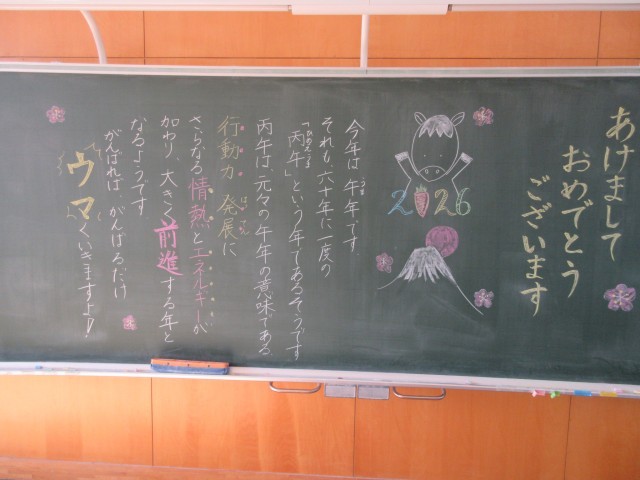 あけまして
おめでとう
ございます
2026
今年は午年です。
それも、六十年に一度の
「丙午」という年であるそうです
丙午は、元々の午年の意味である
行動力 発展に
さらなる情熱とエネルギーが
加わり、大きく前進する年と
なるようです
がんばれば がんばるだけ
ウマくいきますよ！